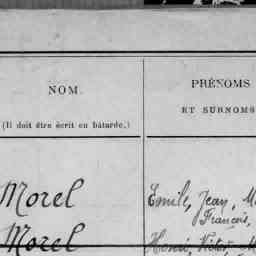 NOM.
(Il doit être écrit en bâtarde.)
PRÉNOMS
ET SURNOMS
Morel
Emile, Jean, M
François,
Morel
Henri, Victor, M